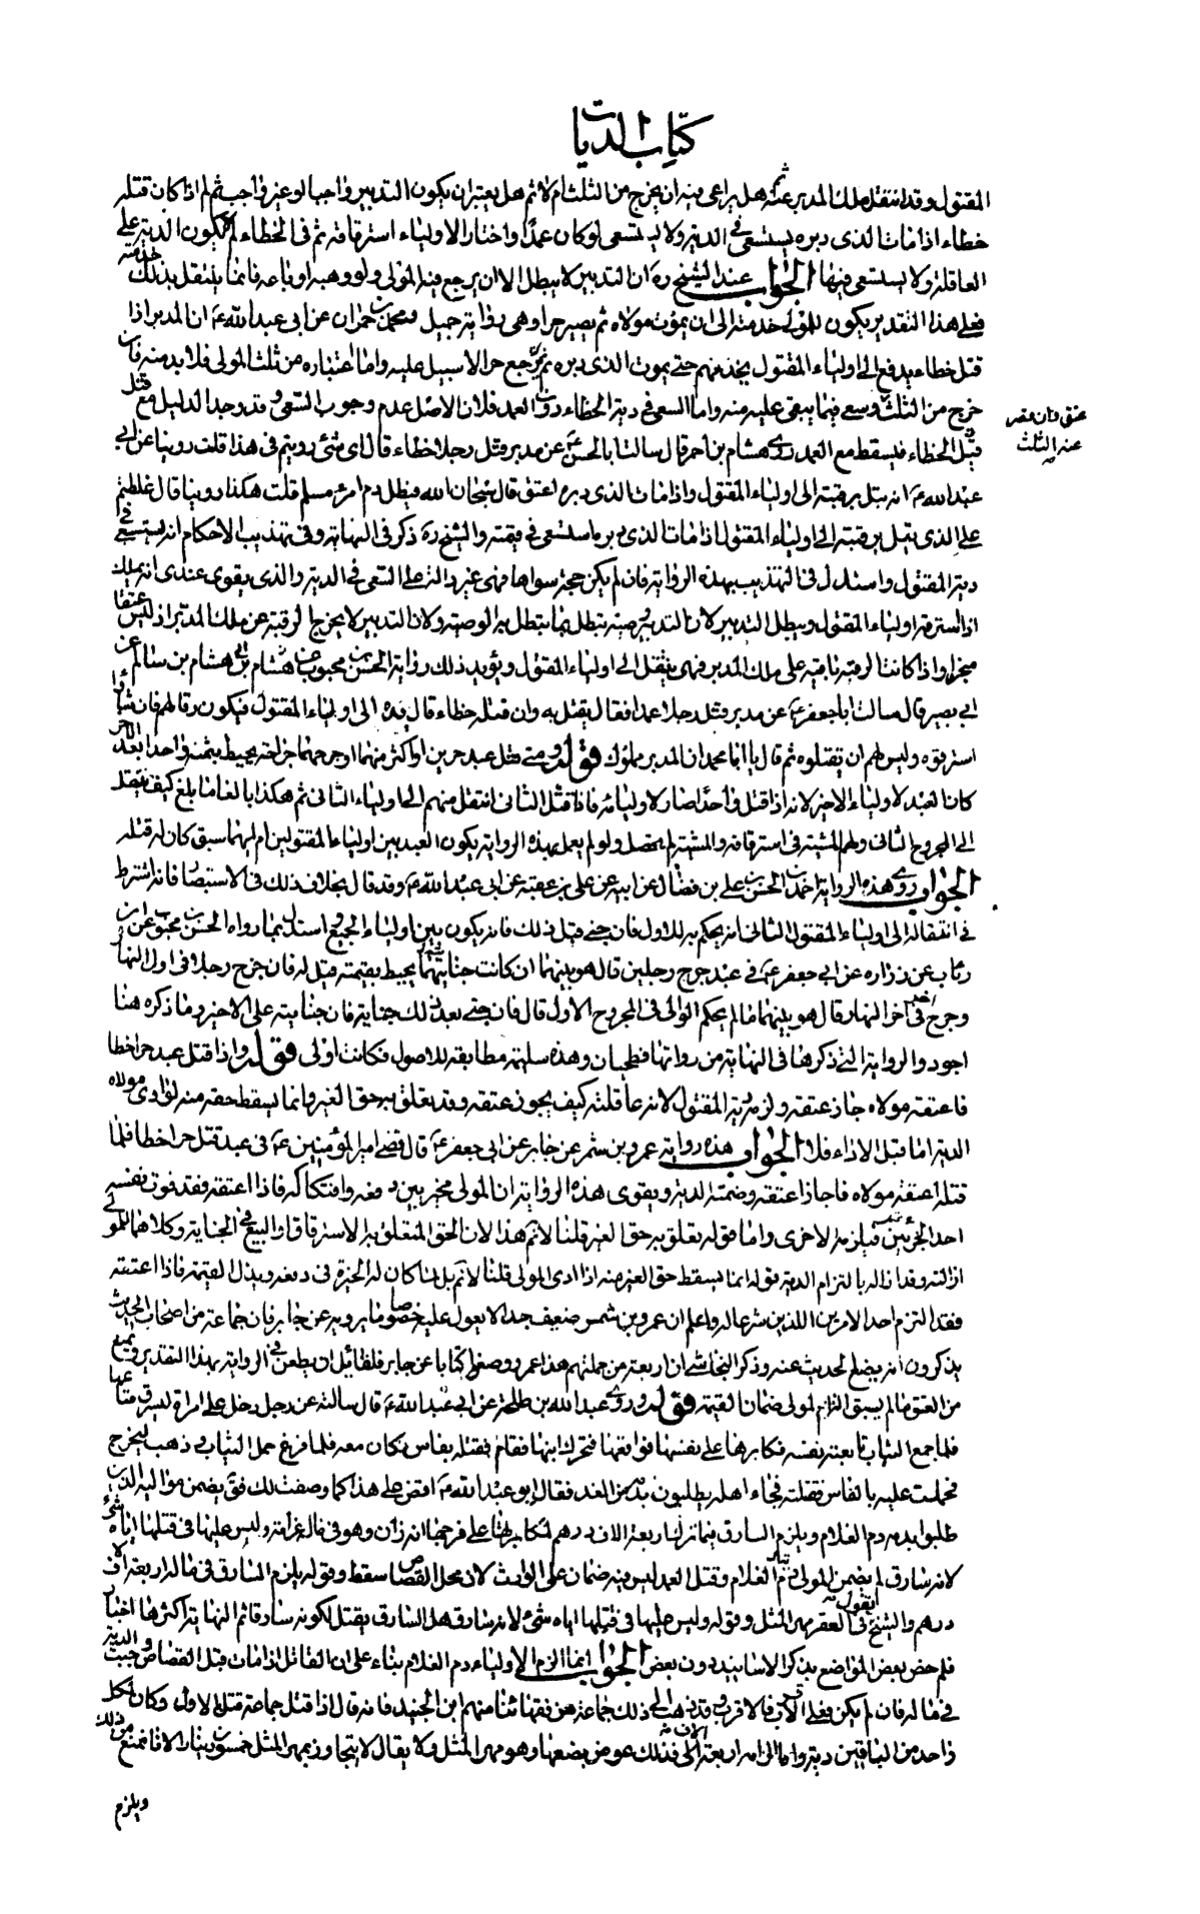 كتاب الديات
المقتول وقد انتقل ملك المدبر عنه ثم هل يراعى فيه ان يخرج من الثلث ام لا ثم هل يعتبر ان يكون التدبير واجبا او غير واجب ثم لم اذا كان قتله
خطاء اذا مات الذى دبره يستسعى فى الدية ولا يستسعى لو كان عمدا واختار الاولياء استرقاقه ثم فى الخطاء لم لا يكون الدية على
العاقلة ولا يستسعى فيها الجواب عند الشيخ ره ان التدبير لا يبطل الا ان يرجع فيه المولى ولو وهبه او باعه فانما ينتقل بذلك خدمته
فعلى هذا التقدير يكون للمولى خدمته الى ان يموت مولاه ثم يصير حرا وهى رواية جميل ومحمد بن حمران عن ابى عبد الله ع ان المدبر اذا
قتل خطاء يدفع الى اولياء المقتول يخدمهم حتى يموت الذى دبره ثم يرجع حرا لا سبيل عليه واما اعتباره من ثلث المولى فلا بد منه فان
خرج من الثلث وسعى فيما يبقى عليه منه واما السعى فى دية الخطاء دون العمد فلان الاصل عدم وجوب السعى وقد وجد الدليل مع قتل
عتق وان قصر
عنه الثلث
قتل الخطاء فيسقط مع العمد روى هشام بن احمر قال سالت ابا الحسن ع عن مدبر قتل رجلا خطاء قال اى شئ رويتم فى هذا قلت روينا عن ابى
عبد الله ع انه يتل برقبته الى اولياء المقتول واذا مات الذى دبره اعتق قال سبحان الله فيطل دم امرئ مسلم قلت هكذا روينا قال غلطتم
على ابى يتل برقبته الى اولياء المقتول اذا مات الذى دبره استسعى فى قيمته والشيخ ره ذكر فى النهاية وفى تهذيب الاحكام انه يستسعى فى
دية المقتول واستدل فى التهذيب بهذه الرواية فان لم يكن حجة سواها فهى غير دالة على السعى فى الدية والذى يقوى عندى انه يملك
اذا استرقه اولياء المقتول ويبطل التدبير لان التدبير وصية تبطل بما تبطل به الوصية ولان التدبير لا يخرج الرقبة عن ملك المدبر اذ ليس عتقا
منجزا واذا كانت الرقبة باقية على ملك المدبر فهى ينتقل الى اولياء المقتول ويؤيد ذلك رواية الحسن بن محبوب عن هشام بن سالم عن
ابى بصير قال سالت ابا جعفر ع عن مدبر قتل رجلا عمدا فقال يقتل به وان قتله خطاء قال يدفع الى اولياء المقتول فيكون رقا لهم فان شاؤا
استرقوه وليس لهم ان يقتلوه ثم قال يا ابا محمد ان المدبر مملوك قوله ومتى قتل عبد حرين او اكثر منهما او جرحهما جراحة يحيط بثمنه واحدا بعد الاخر
كان العبد لاولياء الاخير لانه اذا قتل واحدا صار لاوليائه فاذا قتل الثانى انتقل منهم الى اولياء الثانى ثم هكذا بالغا ما بلغ كيف ينتقل
الى المجروح الثانى ولهم المشية فى استرقاقه والمشية لم يحصل ولو لم يعمل بهذه الرواية يكون العبد بين اولياء المقتولين ام لايهما سبق كان له قتله
الجواب روى هذه الرواية احمد بن الحسن بن على بن فضال عن ابيه عن على بن عقبة عن ابى عبد الله ع وقد قال بخلاف ذلك فى الاستبصار فانه اشترط
فى انتقاله الى اولياء المقتول الثانى انه يحكم به للاول فان جنى قبل ذلك فانه يكون بين اولياء الجميع واستدل بما رواه الحسن بن محبوب عن ابن
رئاب عن زرارة عن ابى جعفر ع فى عبد جرح رجلين قال هو بينهما ان كانت جنايتهما يحيط بقيمته قيل له فان جرح رجلا فى اول النهار
وجرح اخر فى اخر النهار قال هو بينهما ما لم يحكم الوالى فى المجروح الاول قال فان جنى بعد ذلك جناية فان جنايته على الاخير وما ذكره هنا
اجود والرواية التى ذكرها فى النهاية من رواتها فطحيان وهذه سليمة مطابقة للاصول فكانت اولى قوله واذا قتل عبد حرا خطا
فاعتقه مولاه جاز عتقه ولزم دية المقتول لانه عاقلته كيف يجوز عتقه وقد تعلق به حق الغير وانما يسقط حقه منه لو ادى مولاه
الدية اما قبل الاداء فلا الجواب هذه رواية عمرو بن شمر عن جابر عن ابى جعفر ع قال قضى امير المؤمنين ع فى عبد قتل حرا خطا فلما
قتله اعتقه مولاه فاجاز عتقه وضمنه الدية ويقوى هذه الرواية ان المولى مخير بين دفعه وافتكاكه فاذا اعتقه فقد فوت بنفسه
احد الجزئين فيلزمه الاخرى واما قوله تعلق به حق الغير قلنا لا ثم هذا لان الحق المتعلق به الاسترقاق او البيع فى الجناية وكلاهما للمولى
ازالته وقد ازاله بالتزام الدية قوله انما يسقط حق الغير منه اذا ادى المولى قلنا لا ثم بل لما كان له الخيرة فى دفعه وبذل القيمة فاذا اعتقه
فقد التزم احد الامرين اللذين شرعا له واعلم ان عمرو بن شمر ضعيف جدا لا يعول عليه خصوصا ما يرويه عن جابر فان جماعة من اصحاب الحديث
يذكرون انه يضع الحديث عنه وذكر النجاشى ان اربعة من جملتهم هذا عمرو وضعوا كتابا عن جابر فلقائل ان يطعن فى الرواية بهذا التقدير ويمنع
من العتق ما لم يسبق التزام المولى ضمان القيمة قوله وروى عبد الله بن طلحة عن ابى عبد الله ع قال سالته عن رجل دخل على امراة ليسرق متاعها
فلما جمع الثياب تابعته نفسه فكابرها على نفسها فواقعها فتحرك ابنها فقام فقتله بفاس كان معه فلما فرغ حمل الثياب وذهب ليخرج
فحملت عليه بالفاس فقتلته فجاء اهله يطلبون بدمه من الغد فقال ابو عبد الله ع اقض على هذا كما وصفت لك فق يضمن مواليه الذين
طلبوا بدمه دم الغلام ويلزم السارق فيما ترك اربعة الاف درهم لمكابرتها على فرجها انه زان وهو فى ماله غرامة وليس عليها فى قتلها اياه شئ
لانه سارق لم يضمن المولى دم الغلام وقتل العمد ليس فيه ضمان على الوارث لان محل القصاص سقط وقوله يلزم السارق فى ماله اربعة الاف
درهم والشيخ يقول فى العقر مهر المثل وقوله وليس عليها فى قتلها اياه شئ لانه سارق هل السارق يقتل لكونه سارقا ثم النهاية اكثرها اخبار
فلم خص بعض المواضع بذكر الاسانيد دون بعض الجواب انما الزم الاولياء دم الغلام بناء على ان القاتل اذا مات قبل القصاص وجبت الدية
فى ماله فان لم يكن فعلى الاقرب فالاقرب وقد ذهب الى ذلك جماعة من فقهائنا منهم ابن الجنيد فانه قال اذا قتل جماعة قتل بالاول وكان لكل
واحد من الباقين دية واما الزامه اربعة الاف فذلك عوض بضعها وهو مهر المثل ولا يقال لا يتجاوز بمهر المثل خمسون دينارا لانا نمنع من ذلك
ويلزم